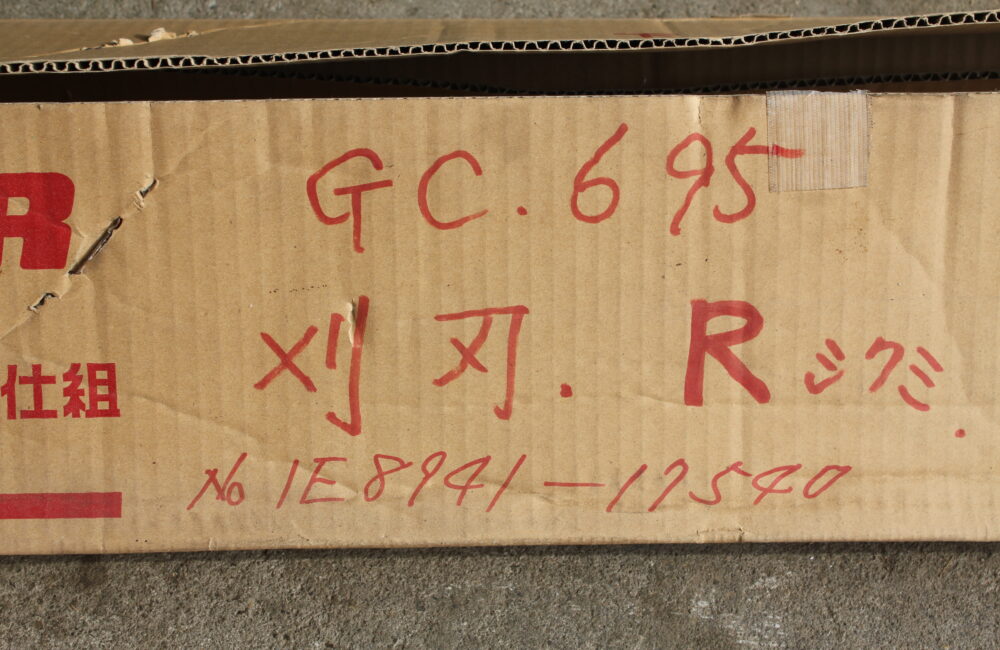 GC.695
R
刈刃.Rシクミ.
仕組
No 1E8941-17540